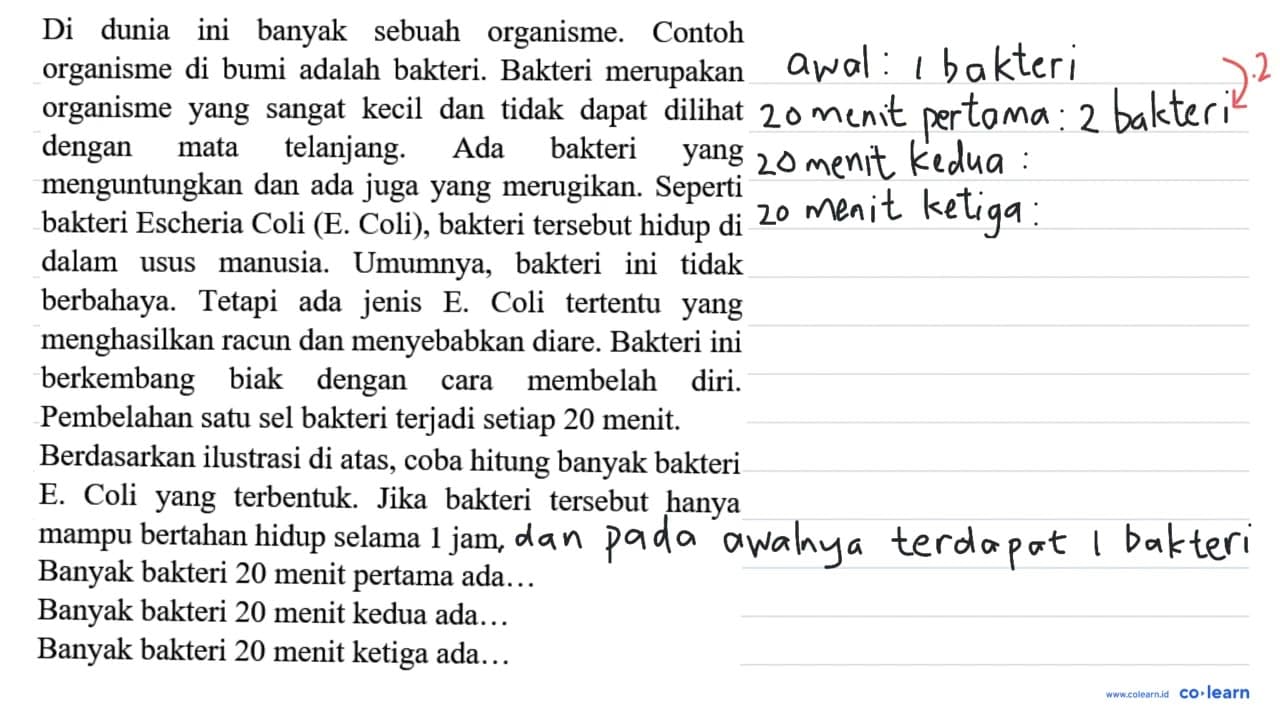 Di dunia ini banyak sebuah organisme. Contoh
organisme di bumi adalah bakteri. Bakteri merupakan
organisme yang sangat kecil dan tidak dapat dilihat
dengan mata telanjang. Ada bakteri yang
menguntungkan dan ada juga yang merugikan. Seperti
bakteri Escheria Coli (E. Coli), bakteri tersebut hidup di
dalam usus manusia. Umumnya, bakteri ini tidak
berbahaya. Tetapi ada jenis E. Coli tertentu yang
menghasilkan racun dan menyebabkan diare. Bakteri ini
berkembang biak dengan cara membelah diri.
Pembelahan satu sel bakteri terjadi setiap 20 menit.
Berdasarkan ilustrasi di atas, coba hitung banyak bakteri
E. Coli yang terbentuk. Jika bakteri tersebut hanya
mampu bertahan hidup selama 1 jam, dan pada awalnya terdapat 1 bakteri
Banyak bakteri 20 menit pertama ada...
Banyak bakteri 20 menit kedua ada...
Banyak bakteri 20 menit ketiga ada...
awal : 1 bakteri
.2
20 menit pertama : 2 bakteri
20 menit kedua :
20 menit ketiga :
www.colearn.id co·learn